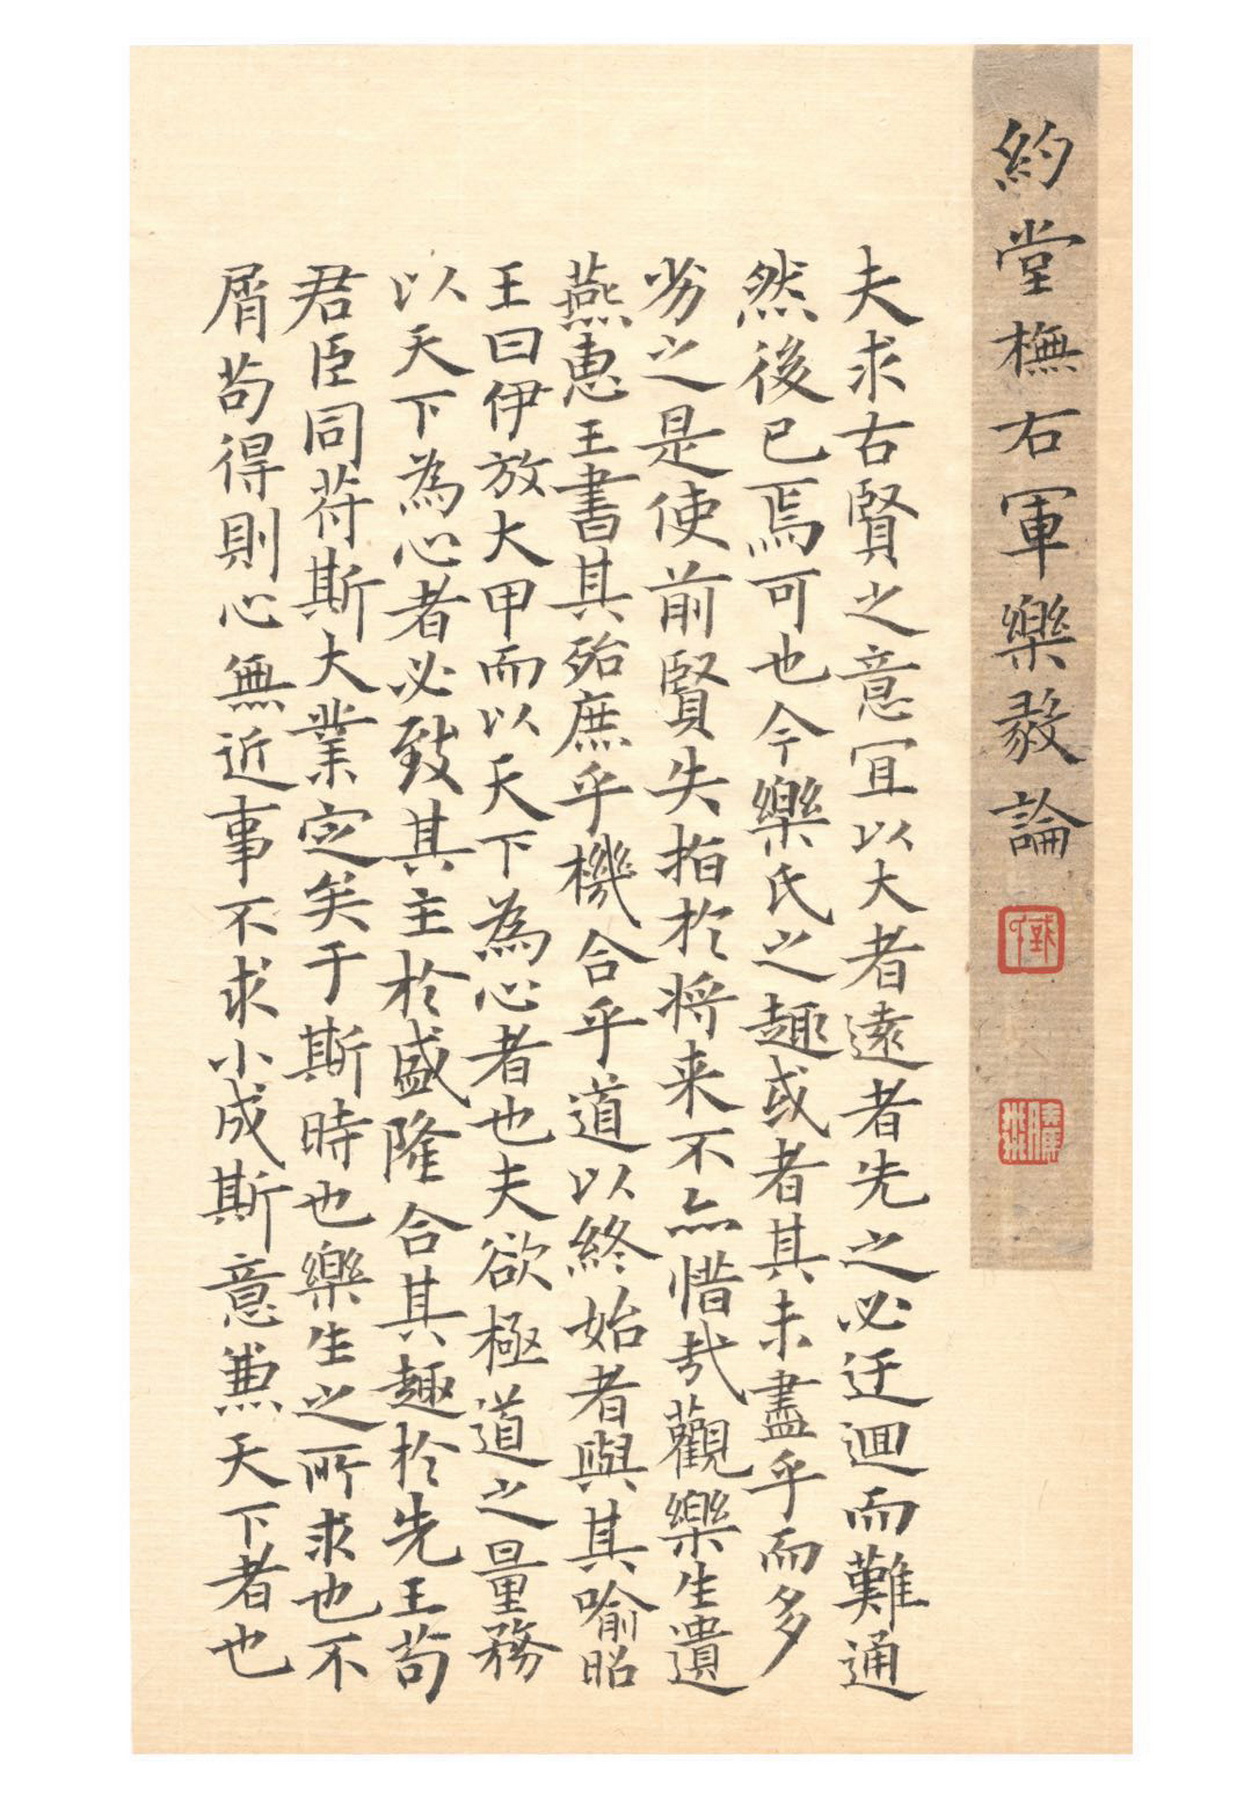 約堂橅右軍樂毅論
夫求古賢之意宜以大者遠者先之必迂迴而難通
然後已焉可也今樂氏之趣或者其未盡乎而多
劣之是使前賢失指於将来不亦惜哉觀樂生遺
燕惠王書其殆庶乎機合乎道以終始者與其喻昭
王曰伊放大甲而以天下為心者也夫欲極道之量務
以天下為心者必致其主於盛隆合其趣於先王苟
君臣同苻斯大業定矣于斯時也樂生之所求也不
屑苟得則心無近事不求小成斯意兼天下者也